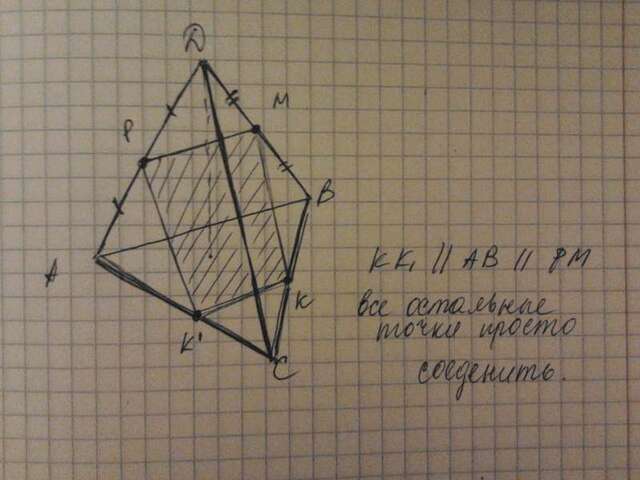 D
M
P
B
A
K
K'
C
KK₁ || AB || PM
все остальные
точки просто
соеденить.